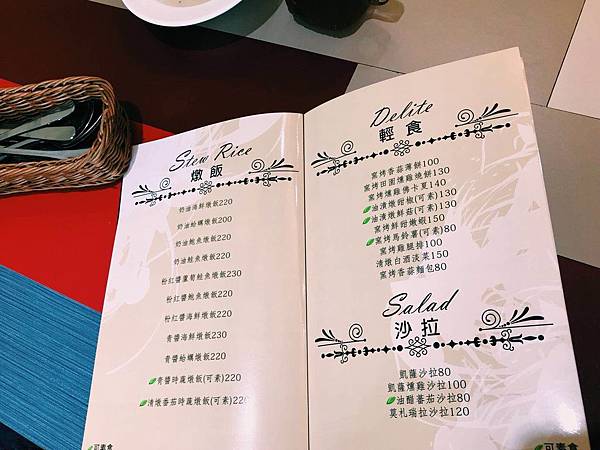 Stew Rice
燉飯
奶油海鮮燉飯220
奶油蛤蠣燉飯200
奶油鮑魚燉飯220
奶油鮭魚燉飯220
粉紅醬蘆筍鮭魚燉飯230
粉紅醬鮑魚燉飯220
粉紅醬海鮮燉飯220
青醬海鮮燉飯230
青醬蛤蠣燉飯220
青醬時蔬燉飯(可素)220
清燉番茄時蔬燉飯(可素)220
可素食
Delite
輕食
窯烤香蒜薄餅100
窯烤田園燻雞燒餅130
窯烤燻雞佛卡夏140
油漬燉甜椒(可素)130
油漬燉鮮菇(可素)130
窯烤鮮甜燉蝦150
窯烤馬鈴薯(可素)80
窯烤雞腿排100
清燉白酒淡菜150
窯烤香蒜麵包80
Salad
沙拉
凱薩沙拉80
凱薩燻雞沙拉100
油醋蕃茄沙拉80
莫札瑞拉沙拉120
可素食